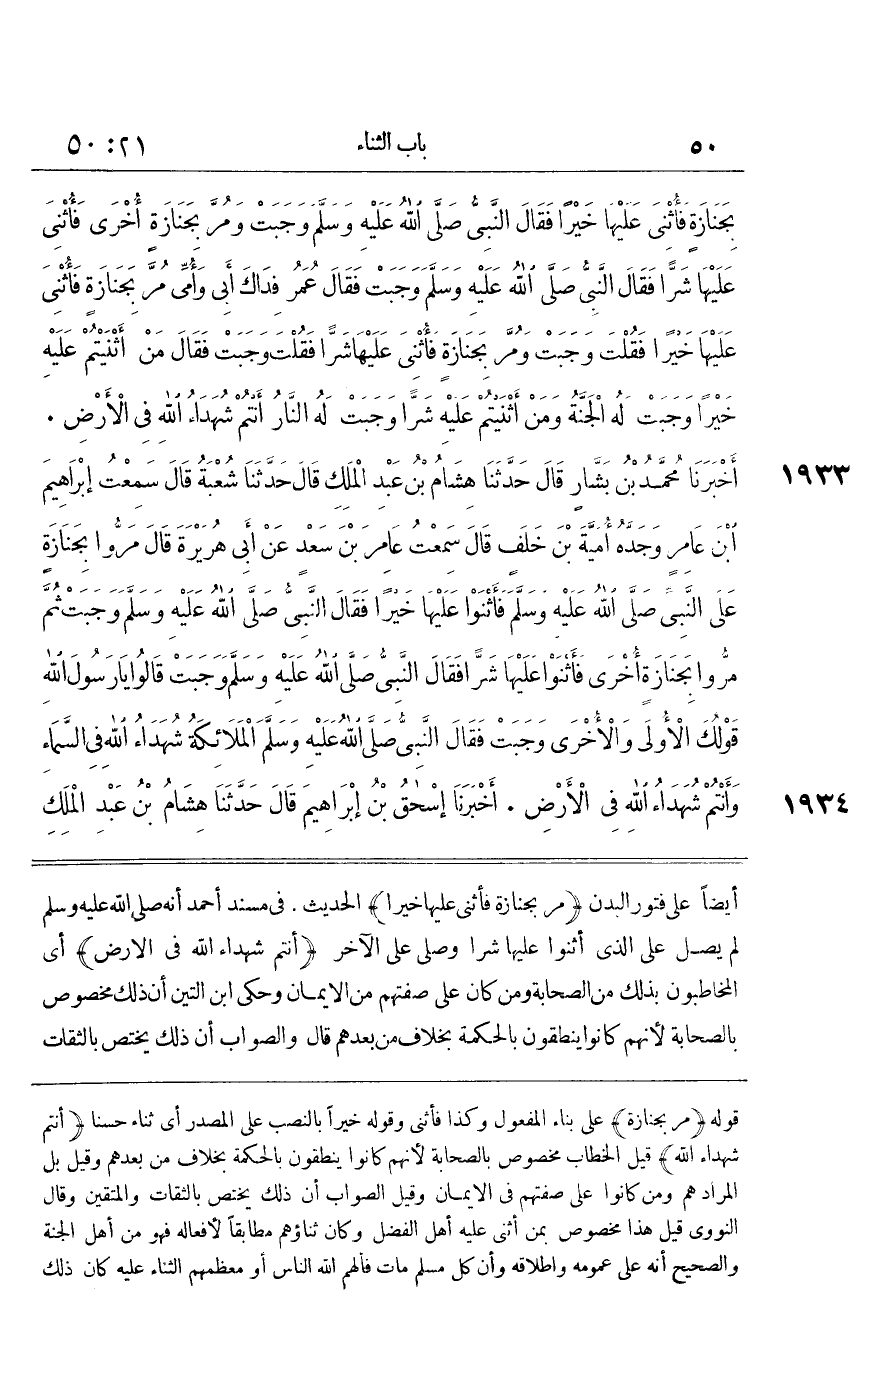 ٥٠ باب الثناء ٢١: ٥٠
بِجَنَازَةٍ فَأُثْنِىَ عَلَيْهَا خَيْرًا فَقَالَ النَّبِىُّ صَلَّى اللّٰهُ عَلَيْهِ وَسَلَّمَ وَجَبَتْ وَمُرَّ بِجَنَازَةٍ أُخْرَى فَأُثْنِىَ
عَلَيْهَا شَرًّا فَقَالَ النَّبِىُّ صَلَّى اللّٰهُ عَلَيْهِ وَسَلَّمَ وَجَبَتْ فَقَالَ عُمَرُ فِدَاكَ أَبِى وَأُمِّى مُرَّ بِجَنَازَةٍ فَأُثْنِىَ
عَلَيْهَا خَيْرًا فَقُلْتَ وَجَبَتْ وَمُرَّ بِجَنَازَةٍ فَأُثْنِىَ عَلَيْهَا شَرًّا فَقُلْتَ وَجَبَتْ فَقَالَ مَنْ أَثْنَيْتُمْ عَلَيْهِ
خَيْرًا وَجَبَتْ لَهُ الْجَنَّةُ وَمَنْ أَثْنَيْتُمْ عَلَيْهِ شَرًّا وَجَبَتْ لَهُ النَّارُ أَنْتُمْ شُهَدَاءُ اللّٰهِ فِى الْأَرْضِ .
١٩٣٣ أَخْبَرَنَا مُحَمَّدُ بْنُ بَشَّارٍ قَالَ حَدَّثَنَا هِشَامُ بْنُ عَبْدِ الْمَلِكِ قَالَ حَدَّثَنَا شُعْبَةُ قَالَ سَمِعْتُ إِبْرَاهِيمَ
ابْنَ عَامِرٍ وَجَدُّهُ أُمَيَّةُ بْنُ خَلَفٍ قَالَ سَمِعْتُ عَامِرَ بْنَ سَعْدٍ عَنْ أَبِى هُرَيْرَةَ قَالَ مَرُّوا بِجَنَازَةٍ
عَلَى النَّبِىِّ صَلَّى اللّٰهُ عَلَيْهِ وَسَلَّمَ فَأَثْنَوْا عَلَيْهَا خَيْرًا فَقَالَ النَّبِىُّ صَلَّى اللّٰهُ عَلَيْهِ وَسَلَّمَ وَجَبَتْ ثُمَّ
مَرُّوا بِجَنَازَةٍ أُخْرَى فَأَثْنَوْا عَلَيْهَا شَرًّا فَقَالَ النَّبِىُّ صَلَّى اللّٰهُ عَلَيْهِ وَسَلَّمَ وَجَبَتْ قَالُوا يَارَسُولَ اللّٰهِ
قَوْلُكَ الْأُولَى وَالْأُخْرَى وَجَبَتْ فَقَالَ النَّبِىُّ صَلَّى اللّٰهُ عَلَيْهِ وَسَلَّمَ الْمَلَائِكَةُ شُهَدَاءُ اللّٰهِ فِى السَّمَاءِ
١٩٣٤ وَأَنْتُمْ شُهَدَاءُ اللّٰهِ فِى الْأَرْضِ . أَخْبَرَنَا إِسْحٰقُ بْنُ إِبْرَاهِيمَ قَالَ حَدَّثَنَا هِشَامُ بْنُ عَبْدِ الْمَلِكِ
أيضاً على فتور البدن ﴿مر بجنازة فأثنى عليها خيرا﴾ الحديث . فى مسند أحمد أنه صلى الله عليه وسلم
لم يصل على الذى أثنوا عليها شرا وصلى على الآخر ﴿أنتم شهداء الله فى الارض﴾ أى
المخاطبون بذلك من الصحابة ومن كان على صفتهم من الايمان وحكى ابن التين أن ذلك مخصوص
بالصحابة لأنهم كانوا ينطقون بالحكمة بخلاف من بعدهم قال والصواب أن ذلك يختص بالثقات
قوله ﴿مر بجنازة﴾ على بناء المفعول وكذا فأثنى وقوله خيراً بالنصب على المصدر أى ثناء حسنا ﴿أنتم
شهداء الله﴾ قيل الخطاب مخصوص بالصحابة لأنهم كانوا ينطقون بالحكمة بخلاف من بعدهم وقيل بل
المراد هم ومن كانوا على صفتهم فى الايمان وقيل الصواب أن ذلك يختص بالثقات والمتقين وقال
النووى قيل هذا مخصوص بمن أثنى عليه أهل الفضل وكان ثناؤهم مطابقاً لأفعاله فهو من أهل الجنة
والصحيح أنه على عمومه واطلاقه وأن كل مسلم مات فألهم الله الناس أو معظمهم الثناء عليه كان ذلك